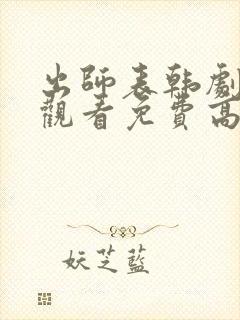 出師表韓劇
觀看免費高
妖芝藍